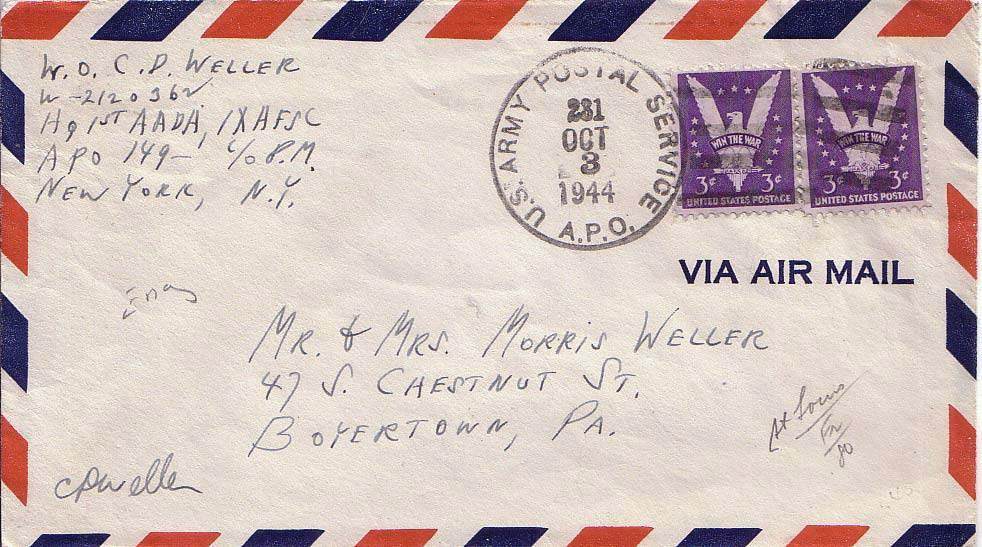 W.O. C.D. WELLER
W-2120362
Hq 1ST AADA, IX AFSC
APO 149- C/O P.M.
NEW YORK, N.Y.
U.S. ARMY POSTAL SERVICE
231
OCT
3
1944
A.P.O.
WIN THE WAR
3¢ 3¢
UNITED STATES POSTAGE
WIN THE WAR
3¢ 3¢
UNITED STATES POSTAGE
VIA AIR MAIL
MR. & MRS. MORRIS WELLER
47 S. CHESTNUT ST.
BOYERTOWN, PA.
CDWeller